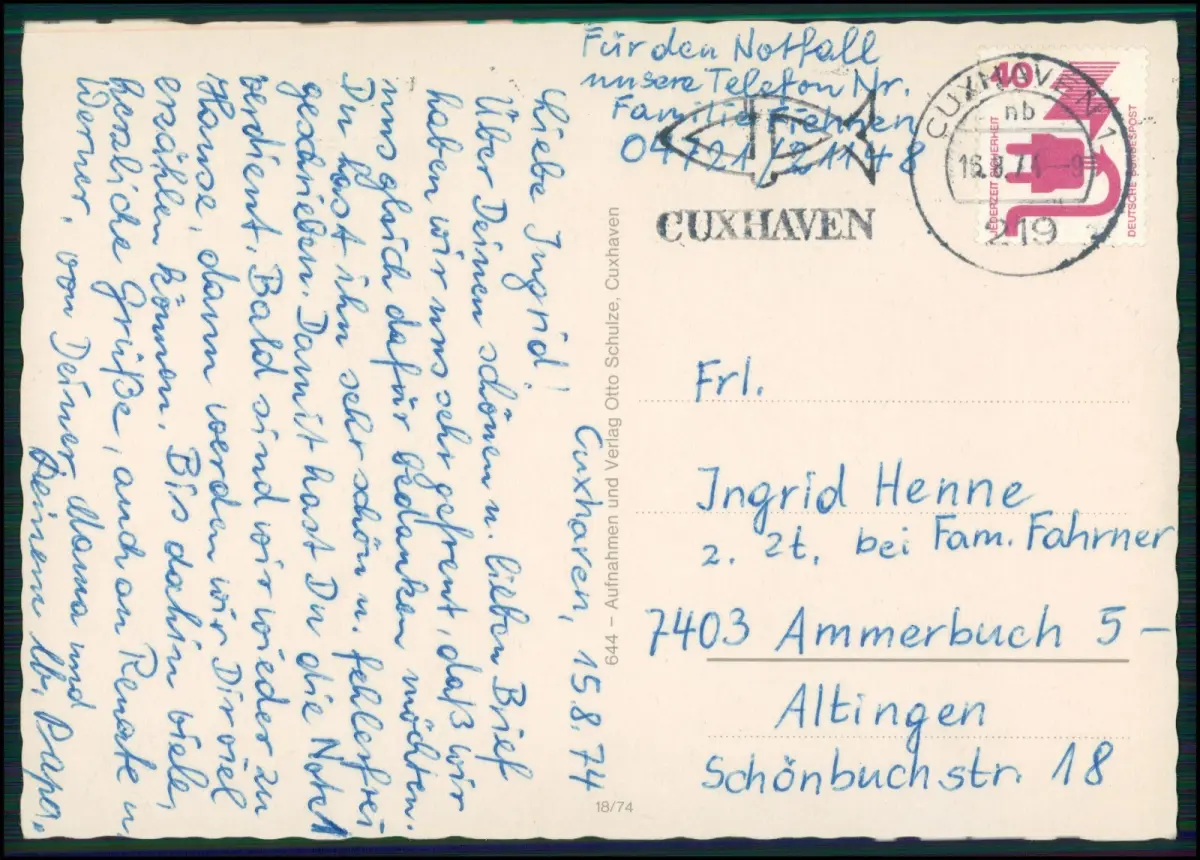 Cuxhaven, 15.8.74
Liebe Ingrid!
Über Deinen schönen u. lieben Brief
haben wir uns sehr gefreut, daß wir
uns gleich dafür bedanken möchten.
Du hast ihn sehr schön u. fehlerfrei
geschrieben. Damit hast Du die Note 1
verdient. Bald sind wir wieder zu
Hause, dann werden wir Dir viel
erzählen können. Bis dahin viele,
herzliche Grüße, auch an Renate u.
Werner, von Deiner Mama und
Deinem lb. Papa.
Für den Notfall
unsere Telefon Nr.
Familie
04721/21148
CUXHAVEN
CUXHAVEN 1
nb
15.8.74 -9
219
40
JEDERZEIT SICHERHEIT
DEUTSCHE BUNDESPOST
Frl.
Ingrid Henne
z. Zt. bei Fam. Fahrner
7403 Ammerbuch 5 –
Altingen
Schönbuchstr. 18
644 – Aufnahmen und Verlag Otto Schulze, Cuxhaven
18/74